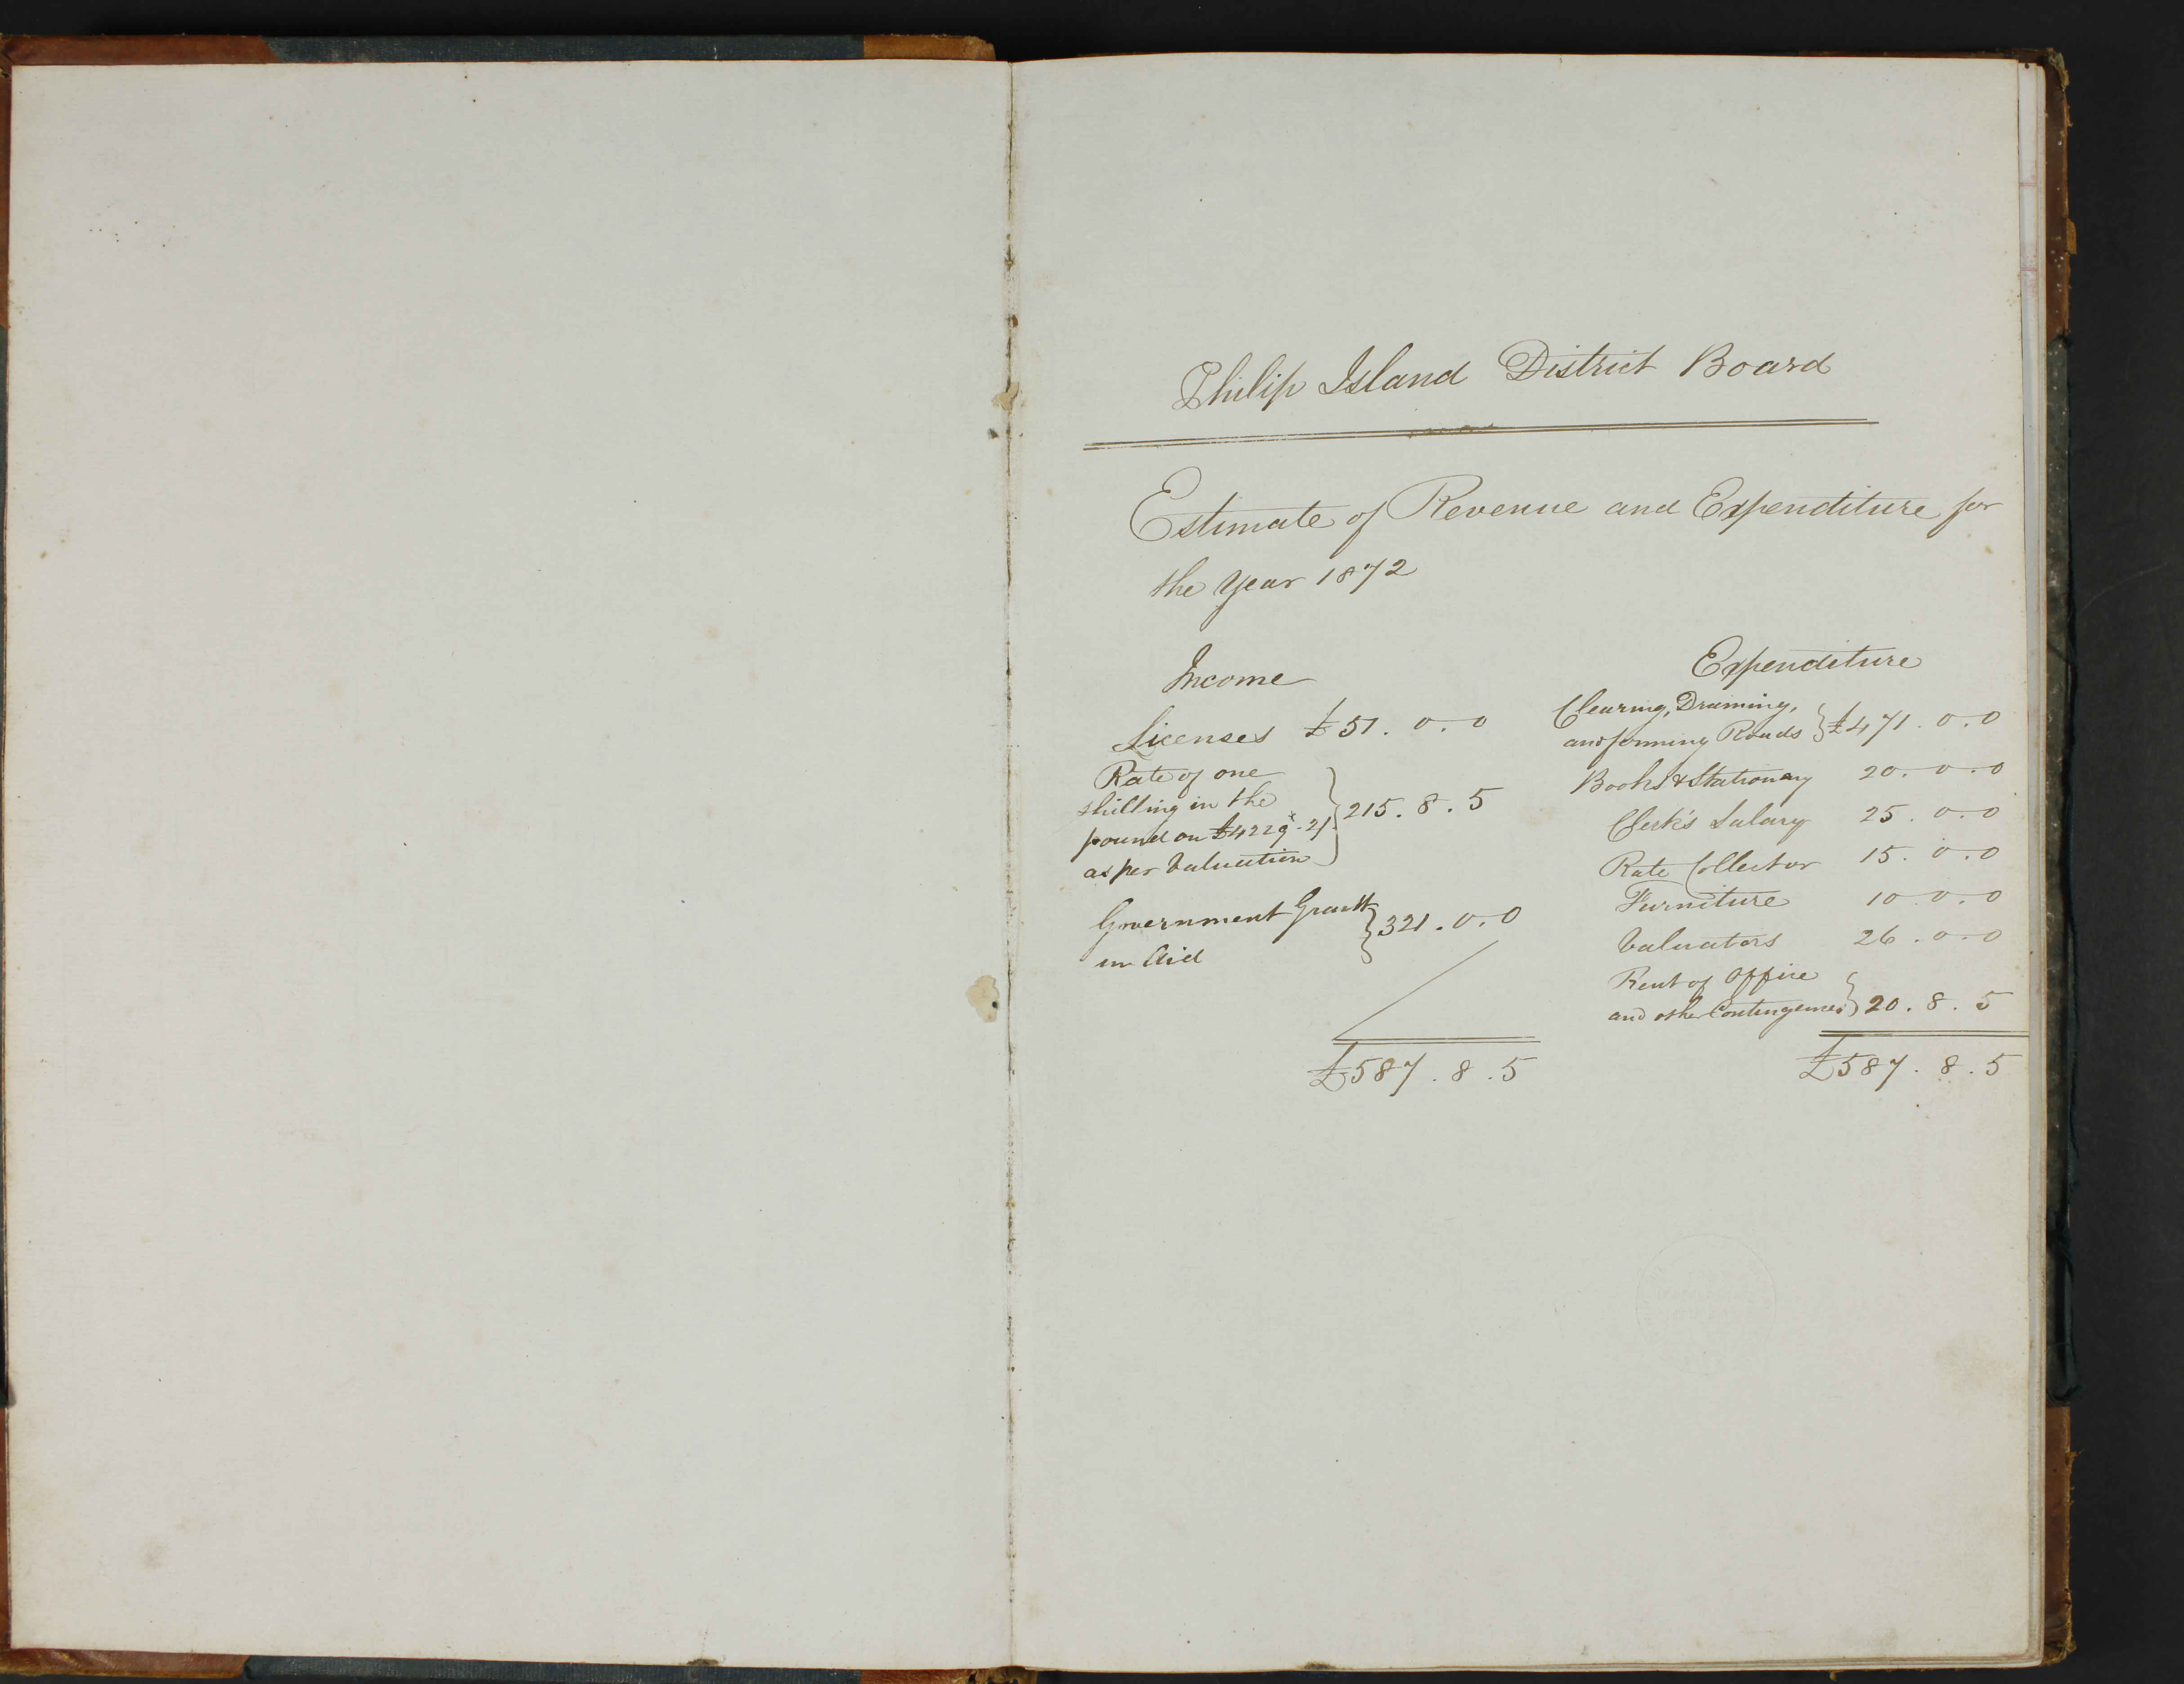 Philip Island District Board
Estimate of Revenue and Expenditure for
the Year 1872
Income
Licenses £51.0.0
Rate of one
shilling in the
pound on £4229.21
as per Valuation } 215.8.5
Government Grant
in Aid } 321.0.0
£587.8.5
Expenditure
Clearing, Draining,
and forming Roads } £471.0.0
Books & Stationary 20.0.0
Clerk's Salary 25.0.0
Rate Collector 15.0.0
Furniture 10.0.0
Valuators 26.0.0
Rent of Office
and other Contingencies } 20.8.5
£587.8.5